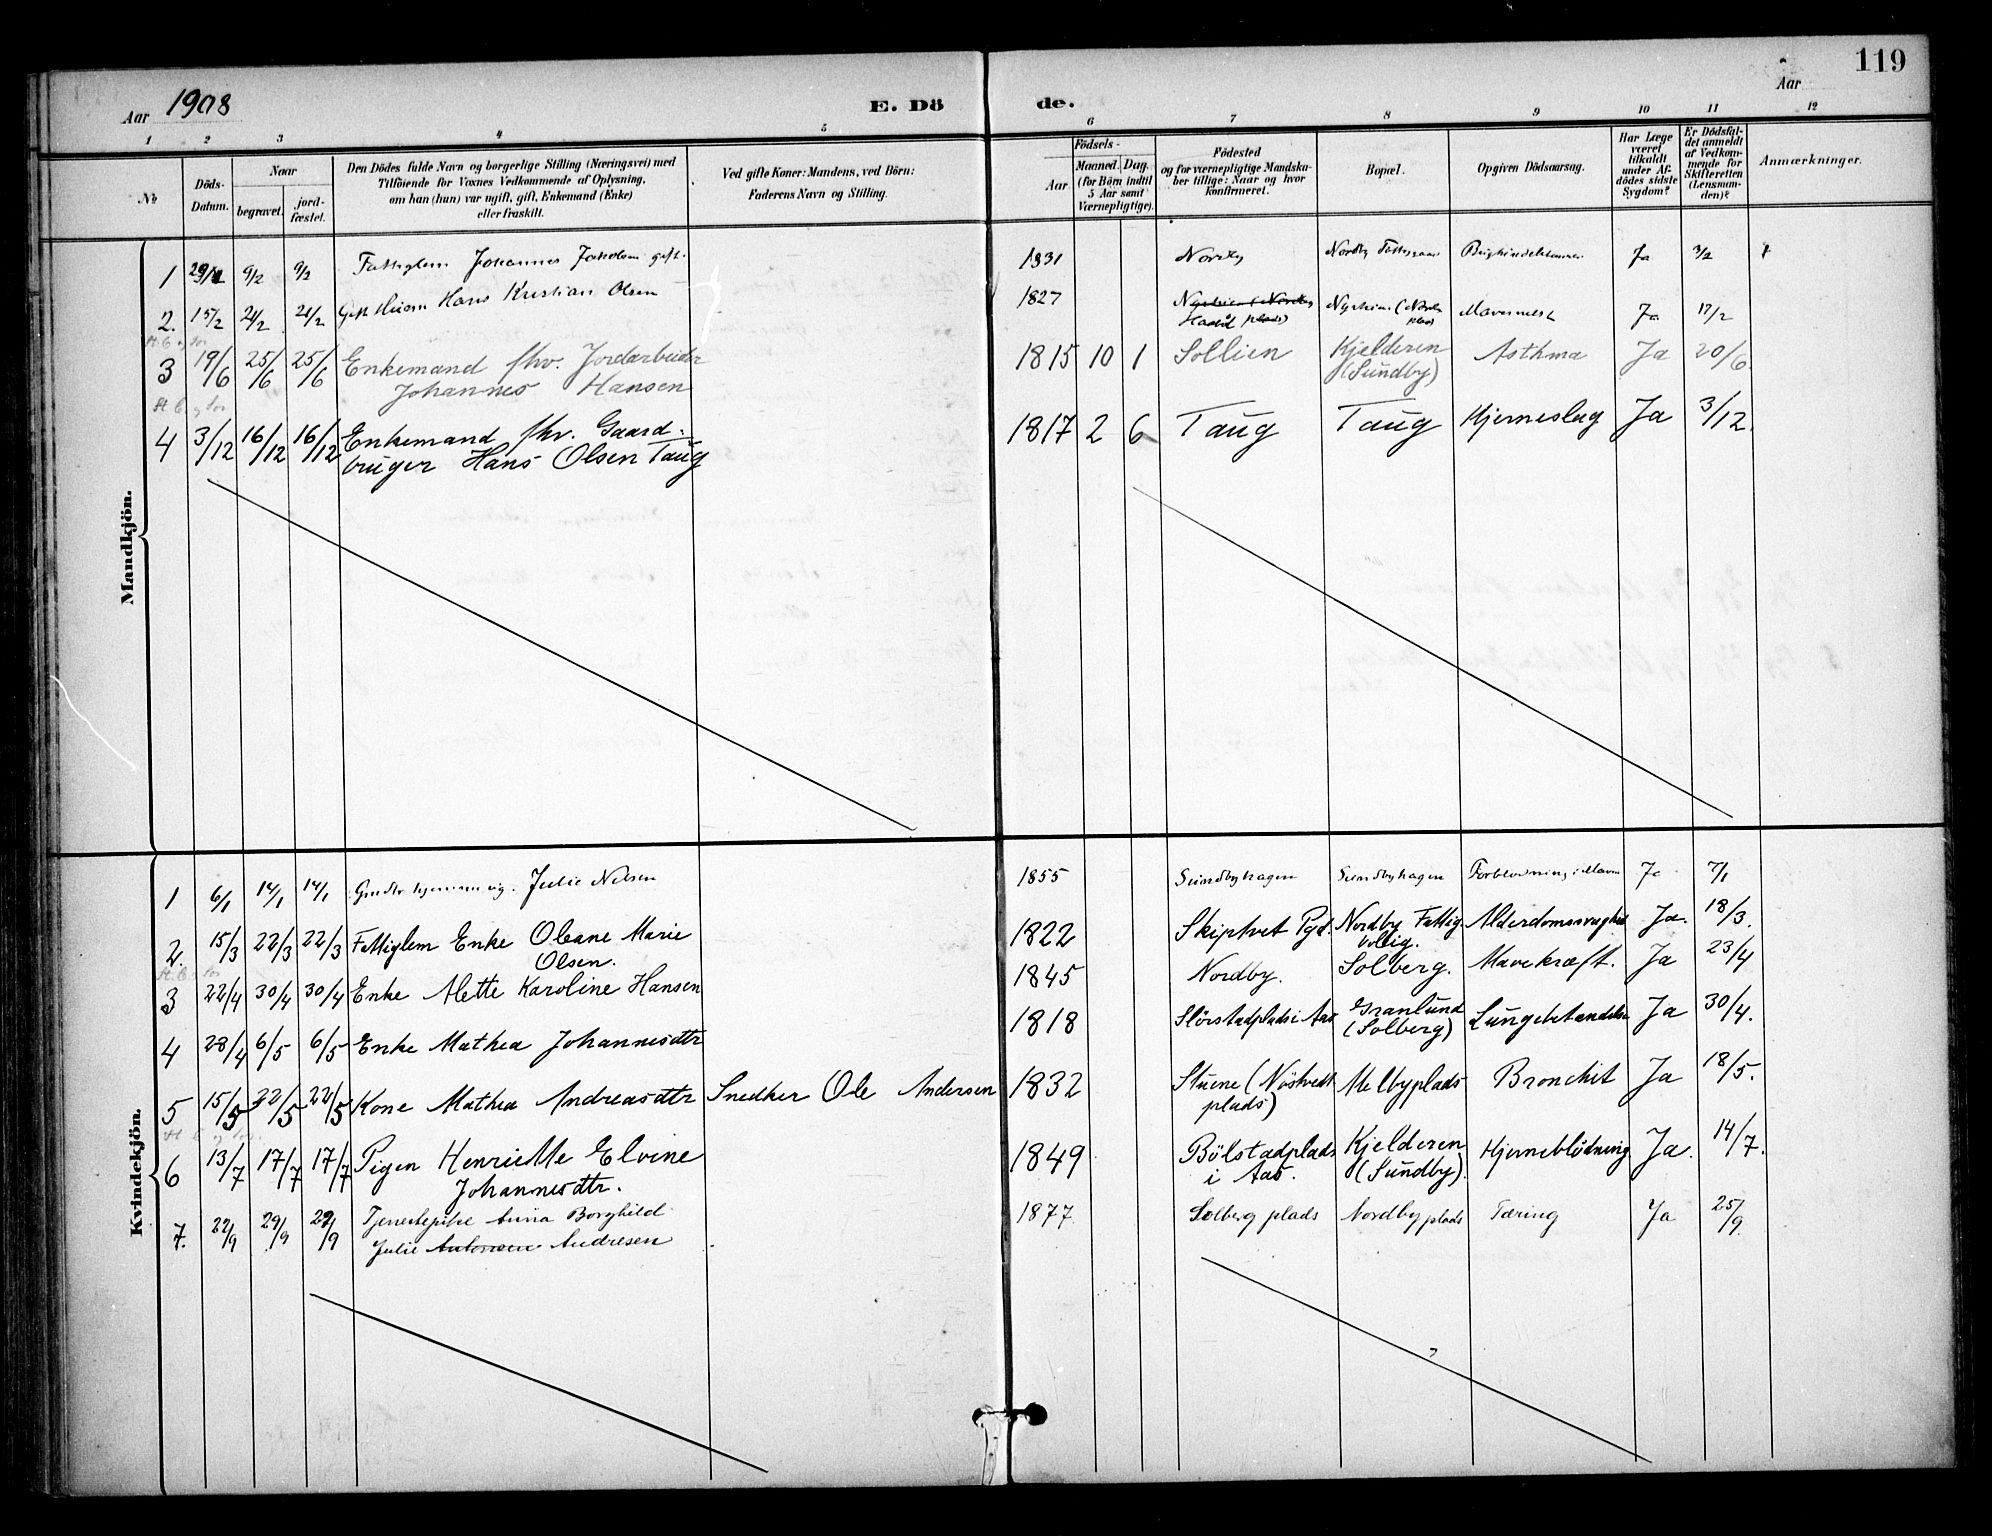 119
Aar 1908 E. Dö de. Aar
1 2 3 4 5 6 7 8 9 10 11 12
№
Döds-
Datum.
Naar
begravet.
jord-
fæstet.
Den Dödes fulde Navn og borgerlige Stilling (Næringsvei) med
Tilföiende for Voxnes Vedkommende af Oplysning,
om han (hun) var ugift, gift, Enkemand (Enke)
eller fraskilt.
Ved gifte Koner: Mandens, ved Börn:
Faderens Navn og Stilling.
Födsels-
Aar
Maaned. Dag.
(for Börn indtil
5 Aar samt
Værnepligtige).
Födested
og for værnepligtige Mandska-
ber tillige: Naar og hvor
konfirmeret.
Bopæl.
Opgiven Dödsaarsag.
Har Læge
været
tilkaldt
under Af-
dödes sidste
Sygdom?
Er Dödsfal-
det anmeldt
af Vedkom-
mende for
Skifteretten
(Lensman-
den)?
Anmærkninger.
Mandkjön.
1 9/2 9/2 Fattiglem Johannes Jakobsen gift. 1831 Nordby Nordby Ja 3/2
2. 15/2 21/2 21/2 Gift Husm Hans Kristian Olsen 1827 Ja 17/2
plads) plads
3 19/6 25/6 25/6 Enkemand fhv. Jordarbeider 1815 10 1 Sollien Kjelderen Asthma Ja 20/6
Johannes Hansen (Sundby)
4 3/12 16/12 16/12 Enkemand fhv. Gaard- 1817 2 6 Taug Taug Hjerneslag Ja 3/12
bruger Hans Olsen Taug
Kvindekjön.
1 6/1 14/1 14/1 Julie Nilsen 1855 Sundbyhagen Sundbyhagen Ja 7/1
2. 15/3 22/3 22/3 Fattiglem Enke Oleane Marie 1822 Skiptvet Pgd. Nordby Fattig- Alderdomssvaghed Ja. 18/3.
Olsen. bolig.
3 22/4 30/4 30/4 Enke Alette Karoline Hansen 1845 Nordby. Solberg. Mavekræft. Ja 23/4
4 28/4 6/5 6/5 Enke Mathea Johannesdtr 1818 Störstadplads i Aas Granlund Lungebetændelse Ja 30/4.
(Solberg)
5 15/5 22/5 22/5 Kone Mathea Andreasdtr Snedker Ole Andersen 1832 Stuene (Nöstvedt Melbyplads Bronchit Ja 18/5.
plads)
6 13/7 17/7 17/7 Pigen Henriette Elvine 1849 Bölstadplads Kjelderen Hjerneblödning Ja. 14/7.
Johannesdtr. i Aas. (Sundby).
7. 22/9 29/9 29/9 Tjenestepike Anna Borghild 1877 Solberg plads Nordby plads Tæring Ja 25/9.
Julie Antonsen Andresen